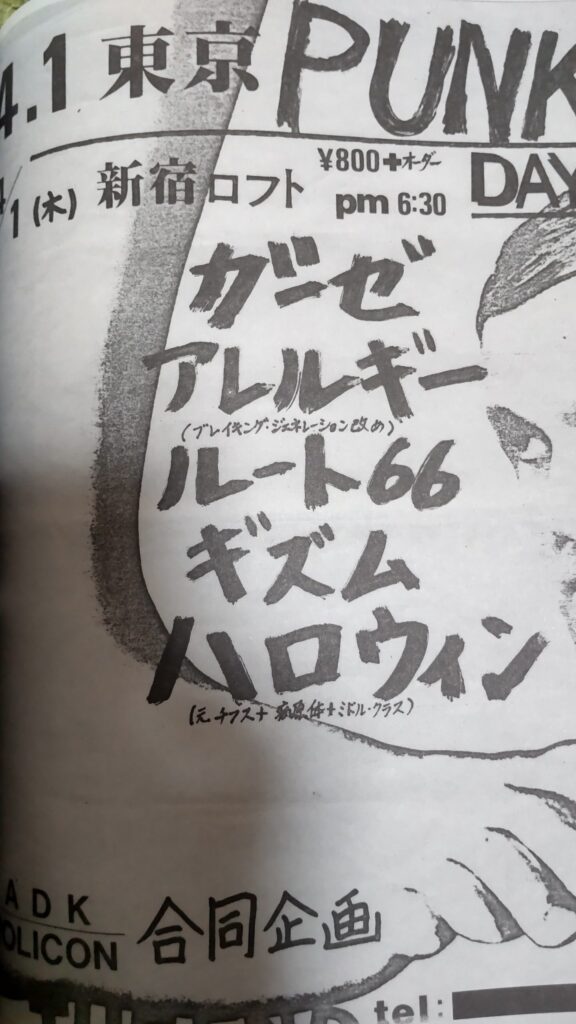 4.1 東京 PUNK
DAY
1 (木) 新宿ロフト ¥800+オーダー
pm 6:30
ガーゼ
アレルギー
(ブレイキング・ジェネレーション改め)
ルート66
ギズム
ハロウィン
(元 チフス+病原体+ミドル・クラス)
ADK
OLICON 合同企画
tel: